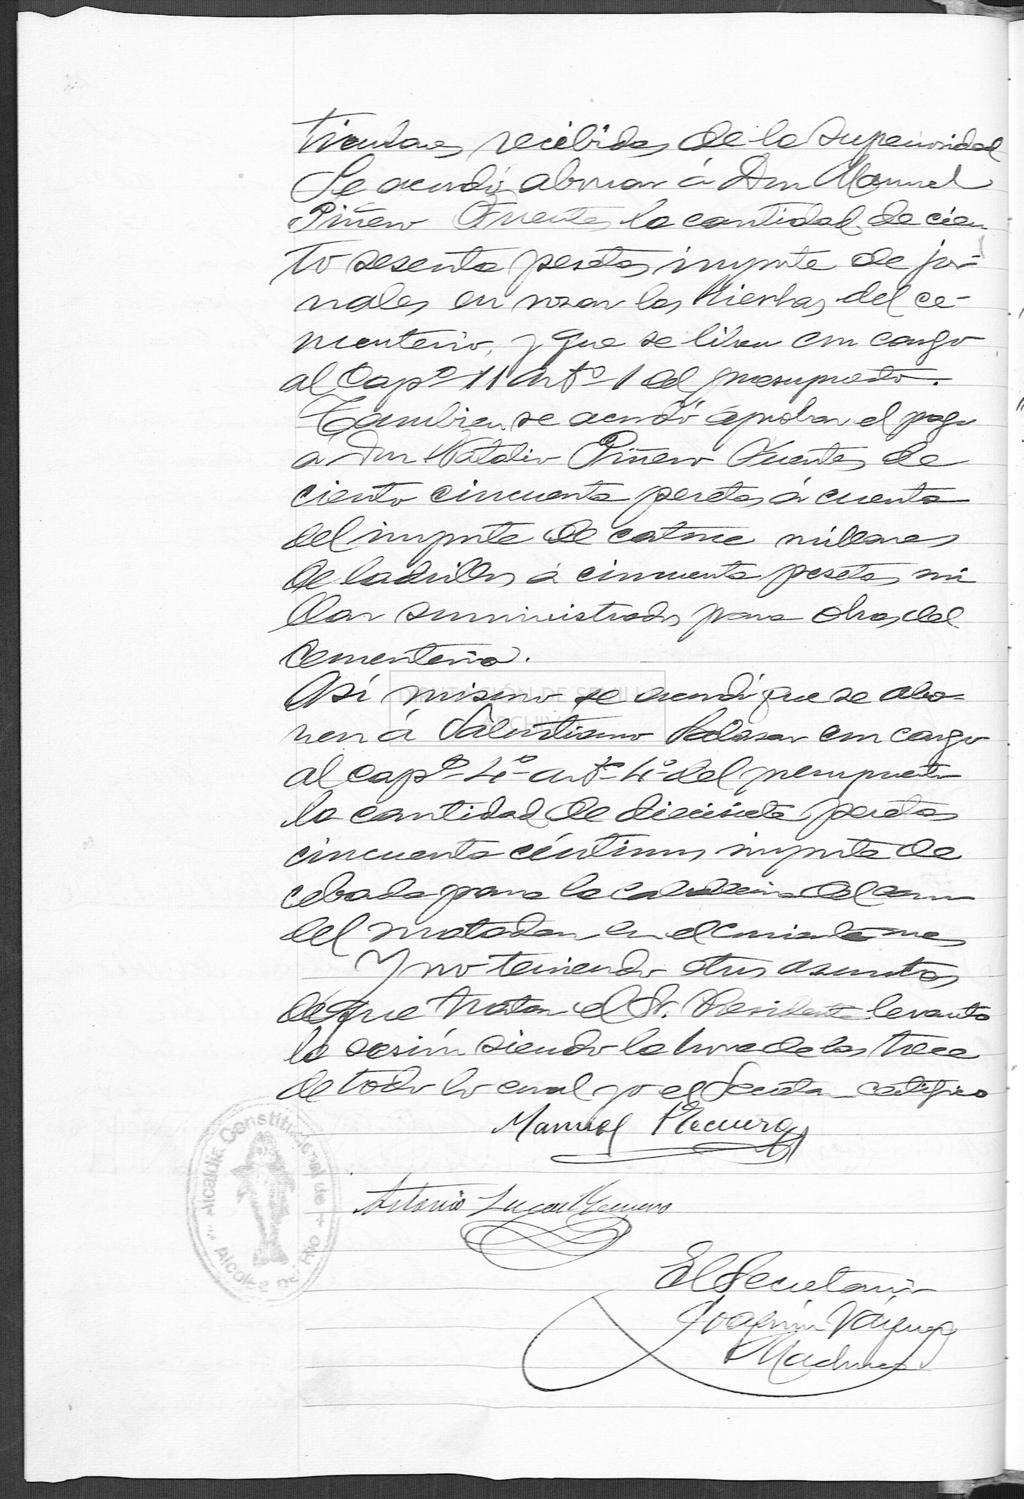 ticulares recibidas de la Superioridad
Se acordó abonar á Don Manuel
Piñero Fuentes la cantidad de cien-
to sesenta pesetas importe de jor-
nales en rozar las hierbas del ce-
menterio, y que se libren con cargo
al Capº 11 artº 1 del presupuesto.
Tambien se acordó aprobar el pago
a Don Natalio Piñero Fuentes de
ciento cincuenta pesetas á cuenta
del importe de catorce millares
de ladrillos á cincuenta pesetas mi
llar suministrados para obras del
Cementerio.
Así mismo se acordó que se abo-
nen á Salustiano Salazar con cargo
al capº 4º artº 4º del presupuesto
la cantidad de diecisiete pesetas
cincuenta céntimos importe de
cebada para la caballeria del carro
del matadero en el corriente mes
Y no teniendo otros asuntos
de que tratar el Sr. Presidente levanto
la sesión siendo la hora de las trece
de todo lo cual yo el Secreta certifico
Manuel
Antonio
El Secretario
Joaquin Vázquez
Alcaldia Constitucional de
DIPUTACIÓN DE SEVILLA
ARCHIVO